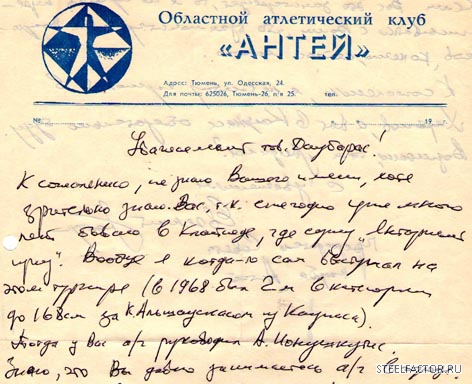 Областной атлетический клуб
«АНТЕЙ»
Адрес: Тюмень, ул. Одесская, 24.
Для почты: 625026, Тюмень-26, п/я 25. тел.
№ 19 г.
Уважаемый тов. Даубарас!
К сожалению, не знаю Вашего имени, хотя
зрительно знаю Вас, т.к. ежегодно уже много
лет бываю в Клайпеде, где сужу "Янтарный
приз". Вообще я когда-то сам выступал на
этом турнире (в 1968 был 2м в категории
до 168см за К. из Каунаса).
Тогда у Вас а/г руководил А.
Знаю, что Вы давно занимаетесь а/г
STEELFACTOR.RU